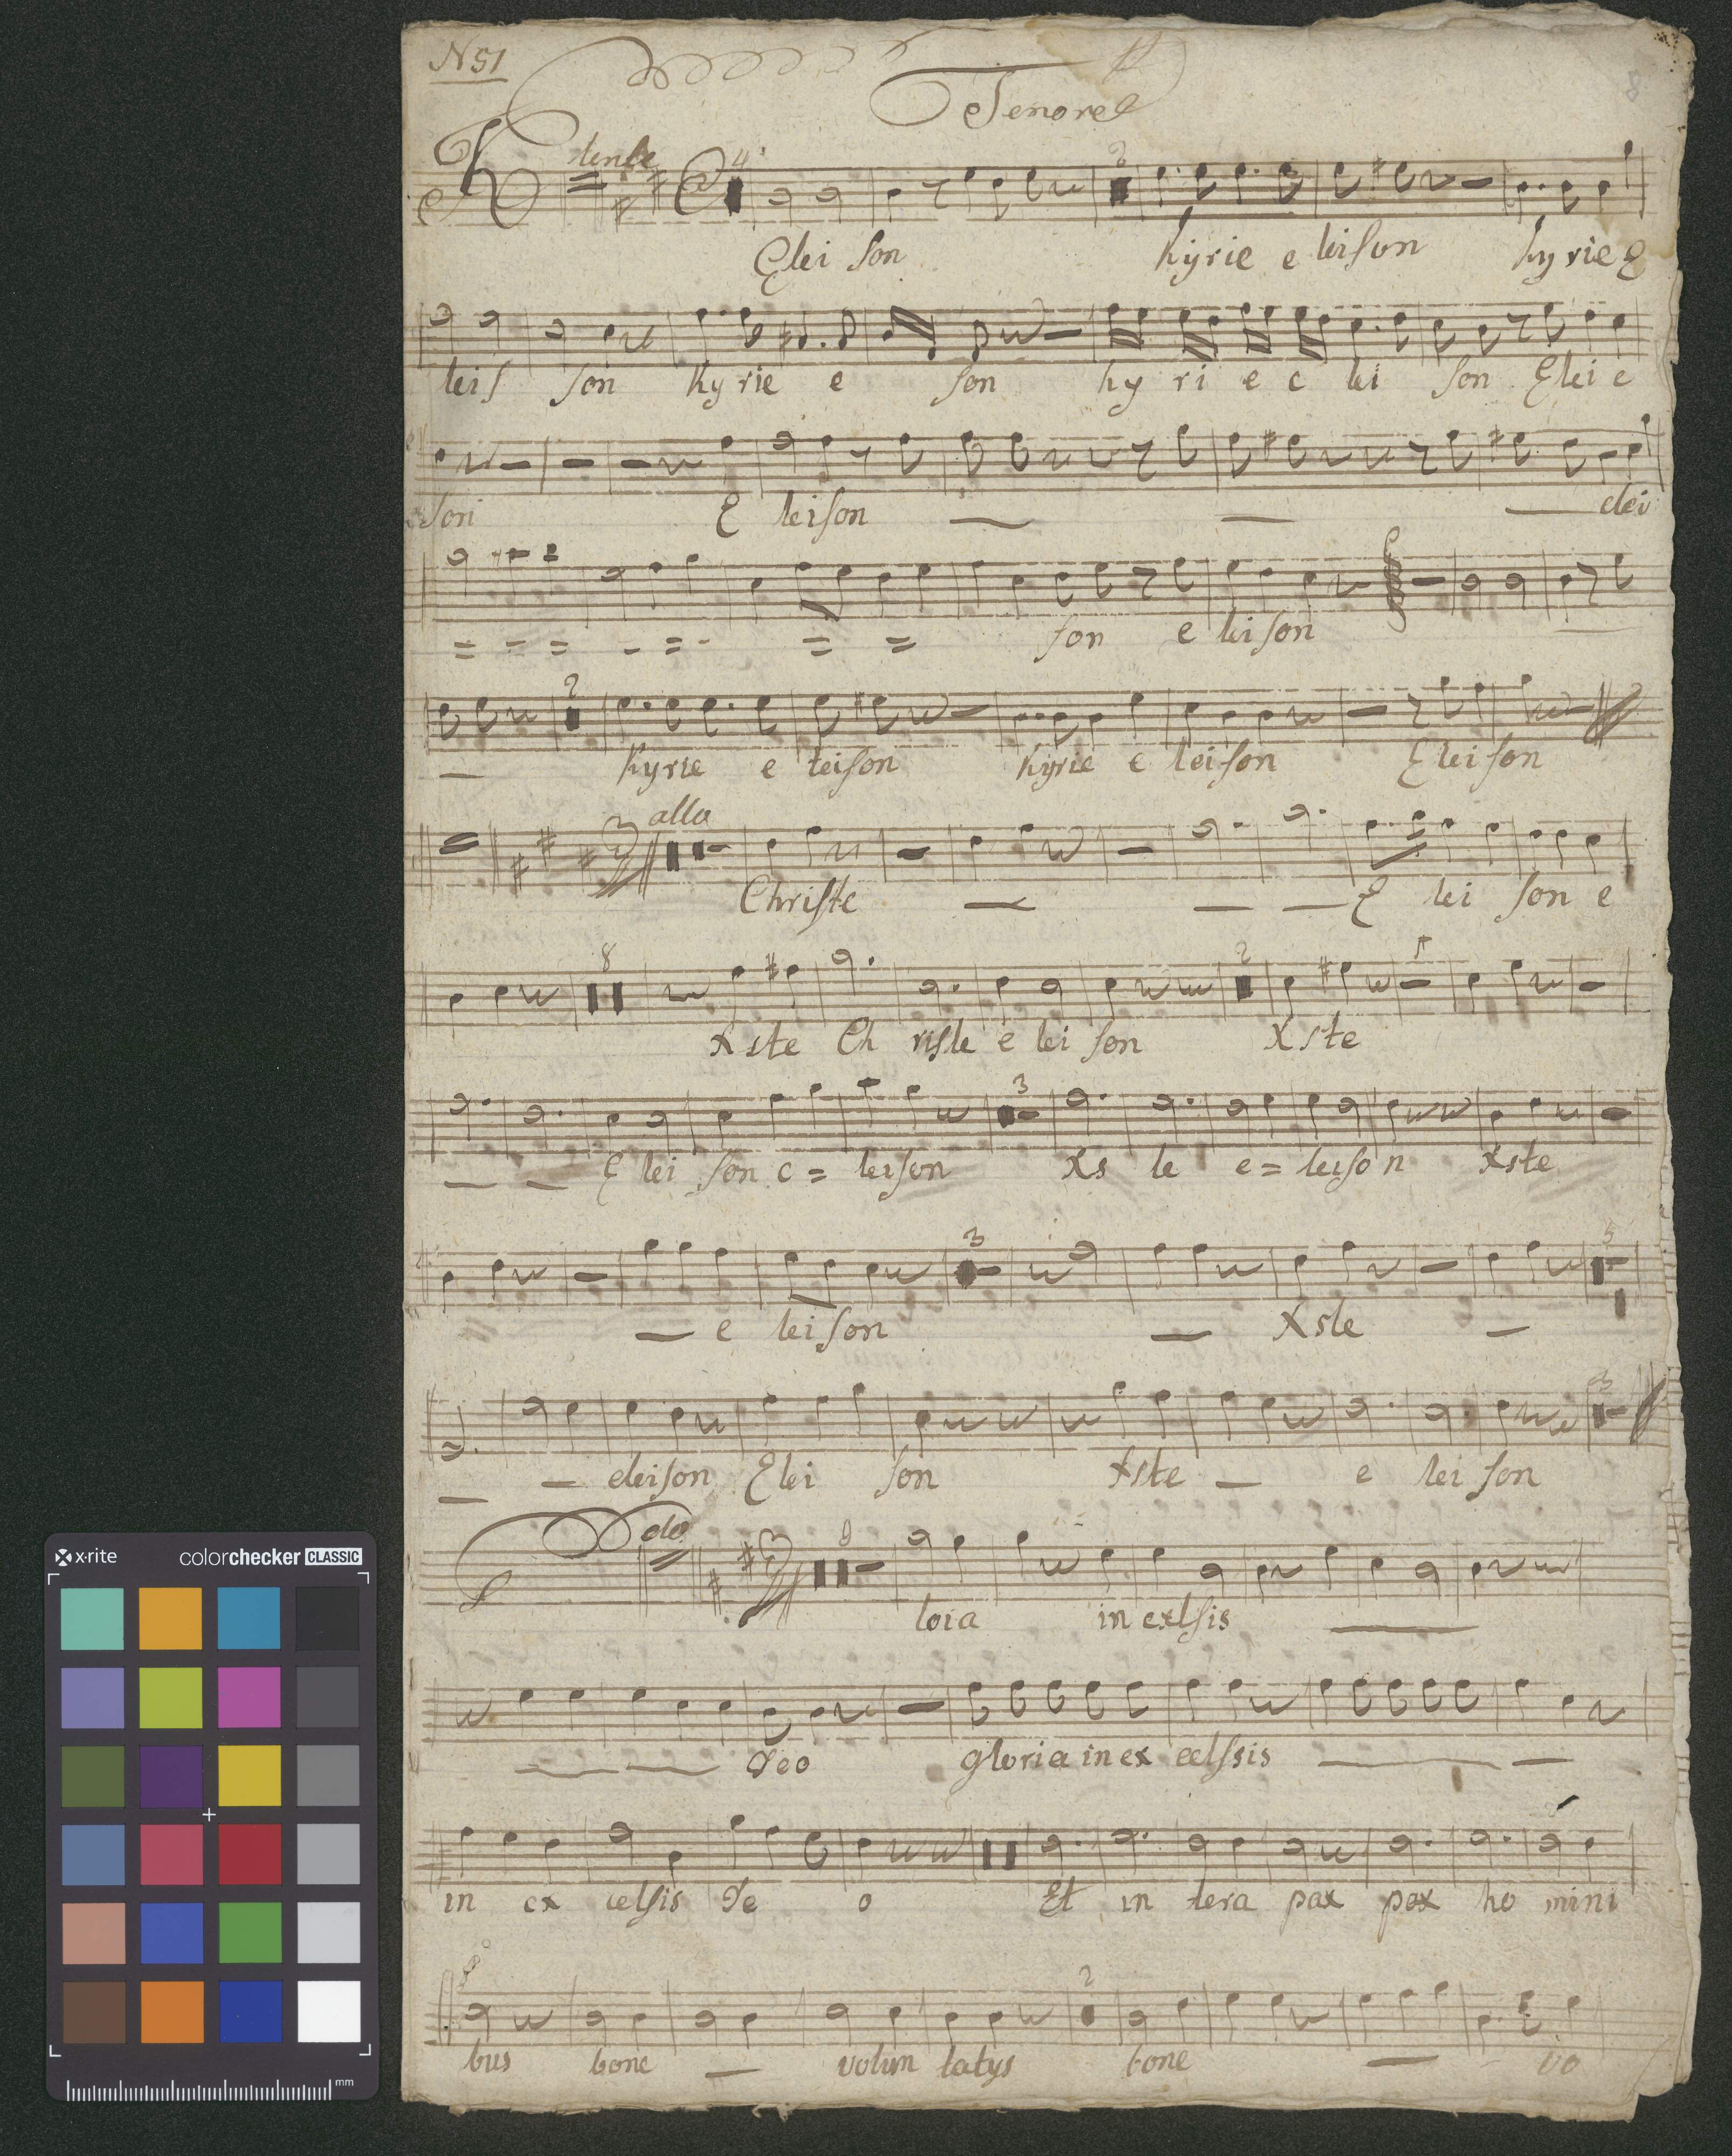 N 51
Tenore
lente
4
2
Elei son kyrie e leison kyrie E
leis son kyrie e son ky ri e e lei son Elei e
son E leison elei
son e lei son
2
kyrie e leison kyrie e leison Eleison
allo
Christe E lei son e
8 2
Xste Ch riste e lei son Xste
3
E lei son e = leison Xs te e = leiso n Xste
3 5
e leison Xste
3
eleison Elei son Xste e lei son
loia in exlsis
Deo gloria in ex celssis
in ex celsis De o Et in tera pax pax ho mini
2
bus bone volun tatys bone vo
x·rite colorchecker CLASSIC
mm